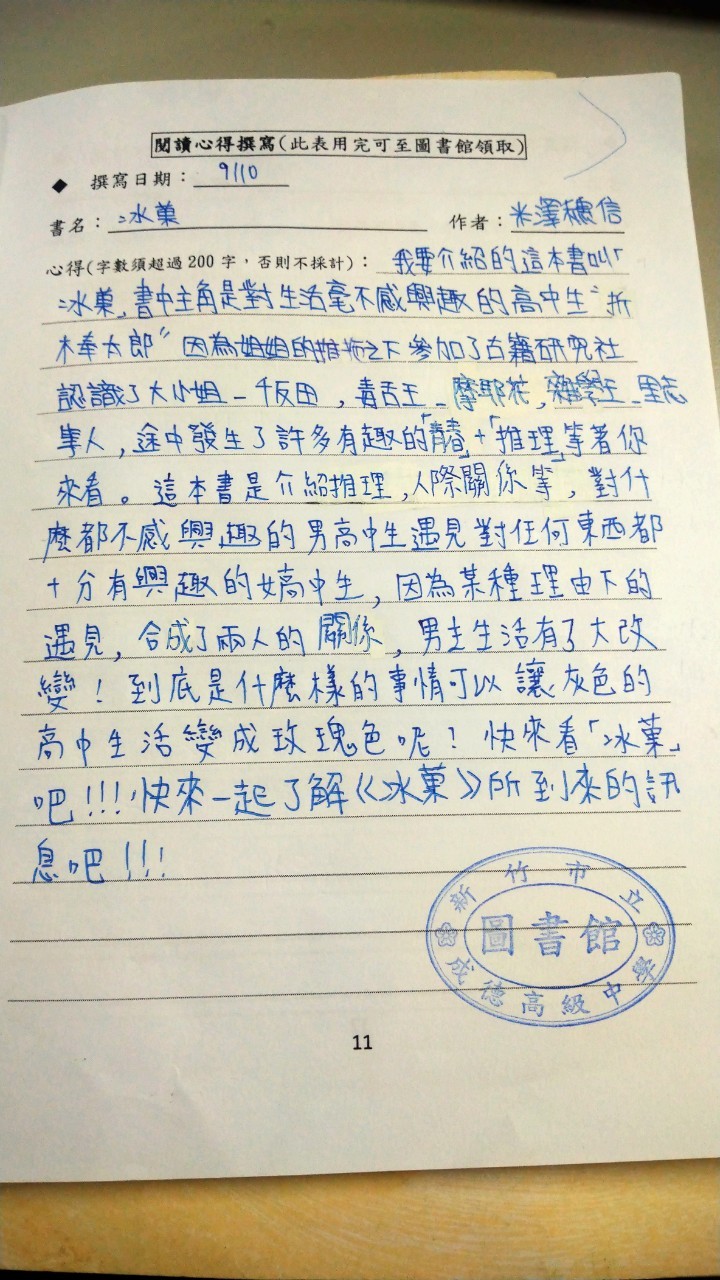 閱讀心得撰寫(此表用完可至圖書館領取)
◆ 撰寫日期：9/10
書名：冰菓 作者：米澤穗信
心得(字數須超過200字，否則不採計)：我要介紹的這本書叫「
冰菓」書中主角是對生活毫不感興趣的高中生"折
木奉太郎"因為姐姐的推拖之下參加了古籍研究社
認識了大小姐－千反田，毒舌王－摩耶花，雜學王－里志
等人，途中發生了許多有趣的「青春」+「推理」等著你
來看。這本書是介紹推理，人際關係等，對什
麼都不感興趣的男高中生遇見對任何東西都
十分有興趣的女高中生，因為某種理由下的
遇見，合成了兩人的關係，男主生活有了大改
變！到底是什麼樣的事情可以讓灰色的
高中生活變成玫瑰色呢？快來看「冰菓」
吧!!!快來一起了解《冰菓》所到來的訊
息吧!!!
新竹市立
圖書館
成德高級中學
11